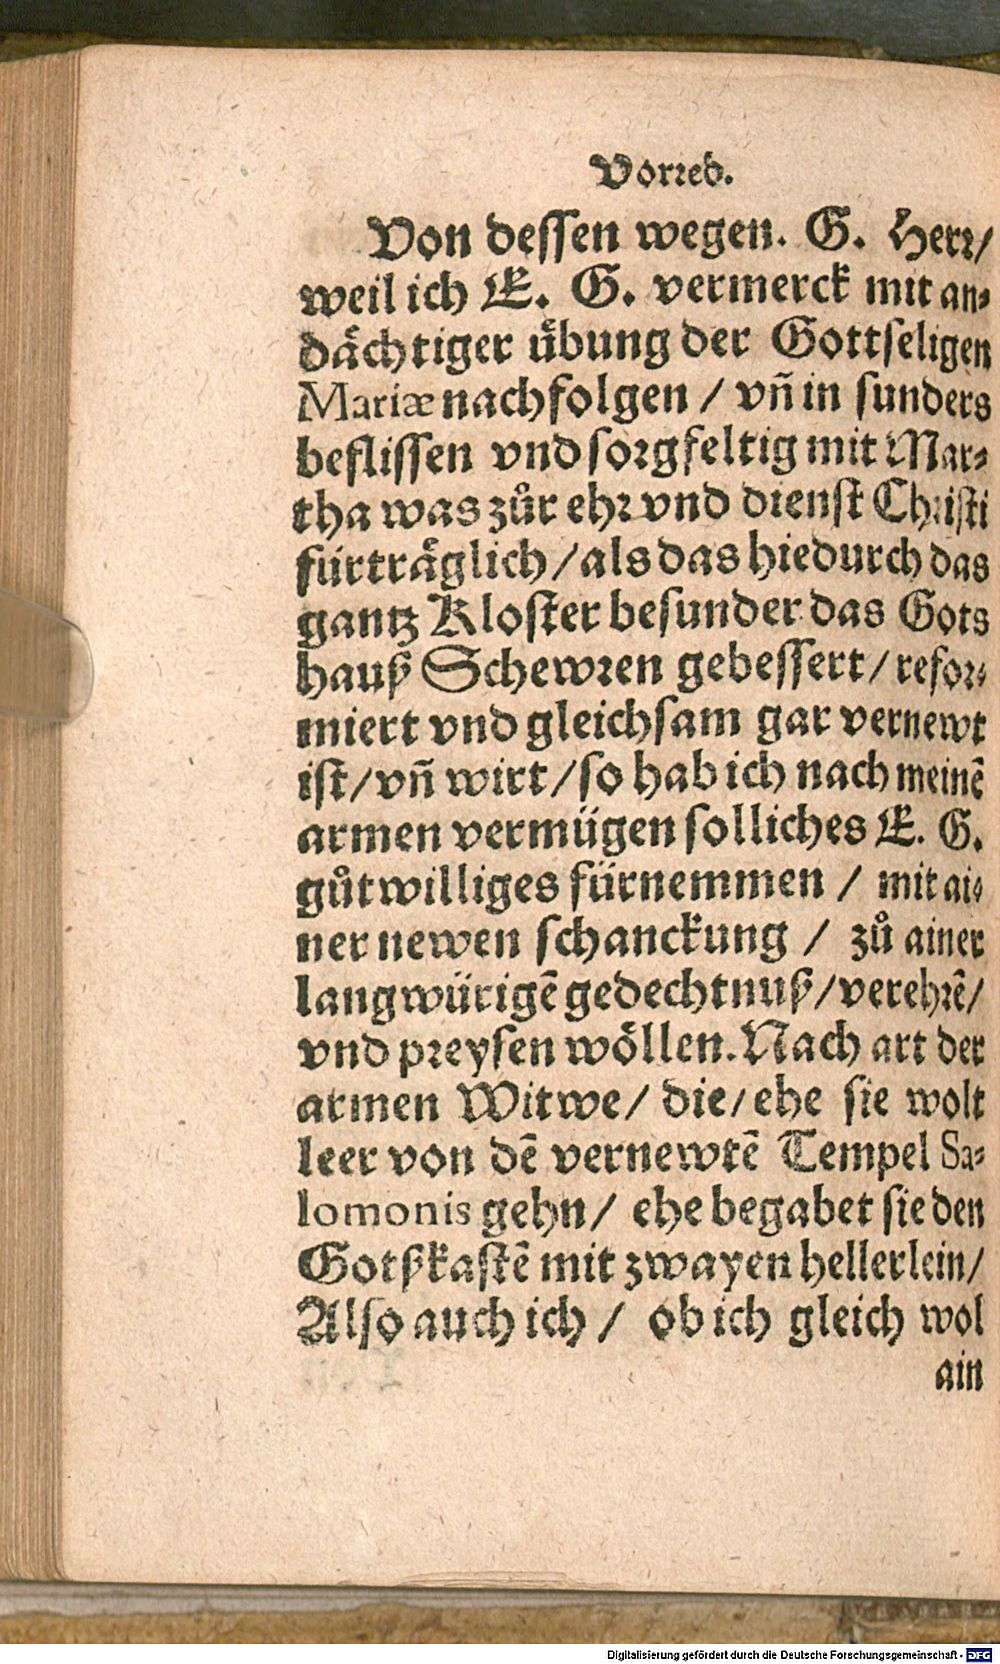 Vorred.
Von dessen wegen. G. Herr/
weil ich E. G. vermerck mit an-
dåchtiger übung der Gottseligen
Mariæ nachfolgen / vñ in sunders
beflissen vnd sorgfeltig mit Mar-
tha was zůr ehr vnd dienst Christi
fürtråglich / als das hiedurch das
gantz Kloster besunder das Gots
hauß Schewren gebessert / refor-
miert vnd gleichsam gar vernewt
ist / vñ wirt / so hab ich nach meinẽ
armen vermügen solliches E. G.
gůtwilliges fürnemmen / mit ai-
ner newen schanckung / zů ainer
langwürigẽ gedechtnuß / verehrẽ /
vnd preysen wöllen. Nach art der
armen Witwe / die / ehe sie wolt
leer von dẽ vernewtẽ Tempel Sa-
lomonis gehn / ehe begabet sie den
Gotßkastẽ mit zwayen hellerlein /
Also auch ich / ob ich gleich wol
ain
Digitalisierung gefördert durch die Deutsche Forschungsgemeinschaft - DFG